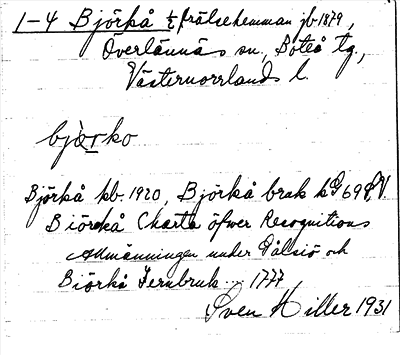 1-4 Björkå ½ frälsehemman jb 1879,
Överlännäs sn., Boteå tg.,
Västernorrlands l.
bjørko
Björkå kb. 1920, Björkå bruk
Biörkå Charta öfwer Recognitions
Allmänningen under Pålsiö och
Biörkå Jernbruk ... 1777
Sven Hiller 1931